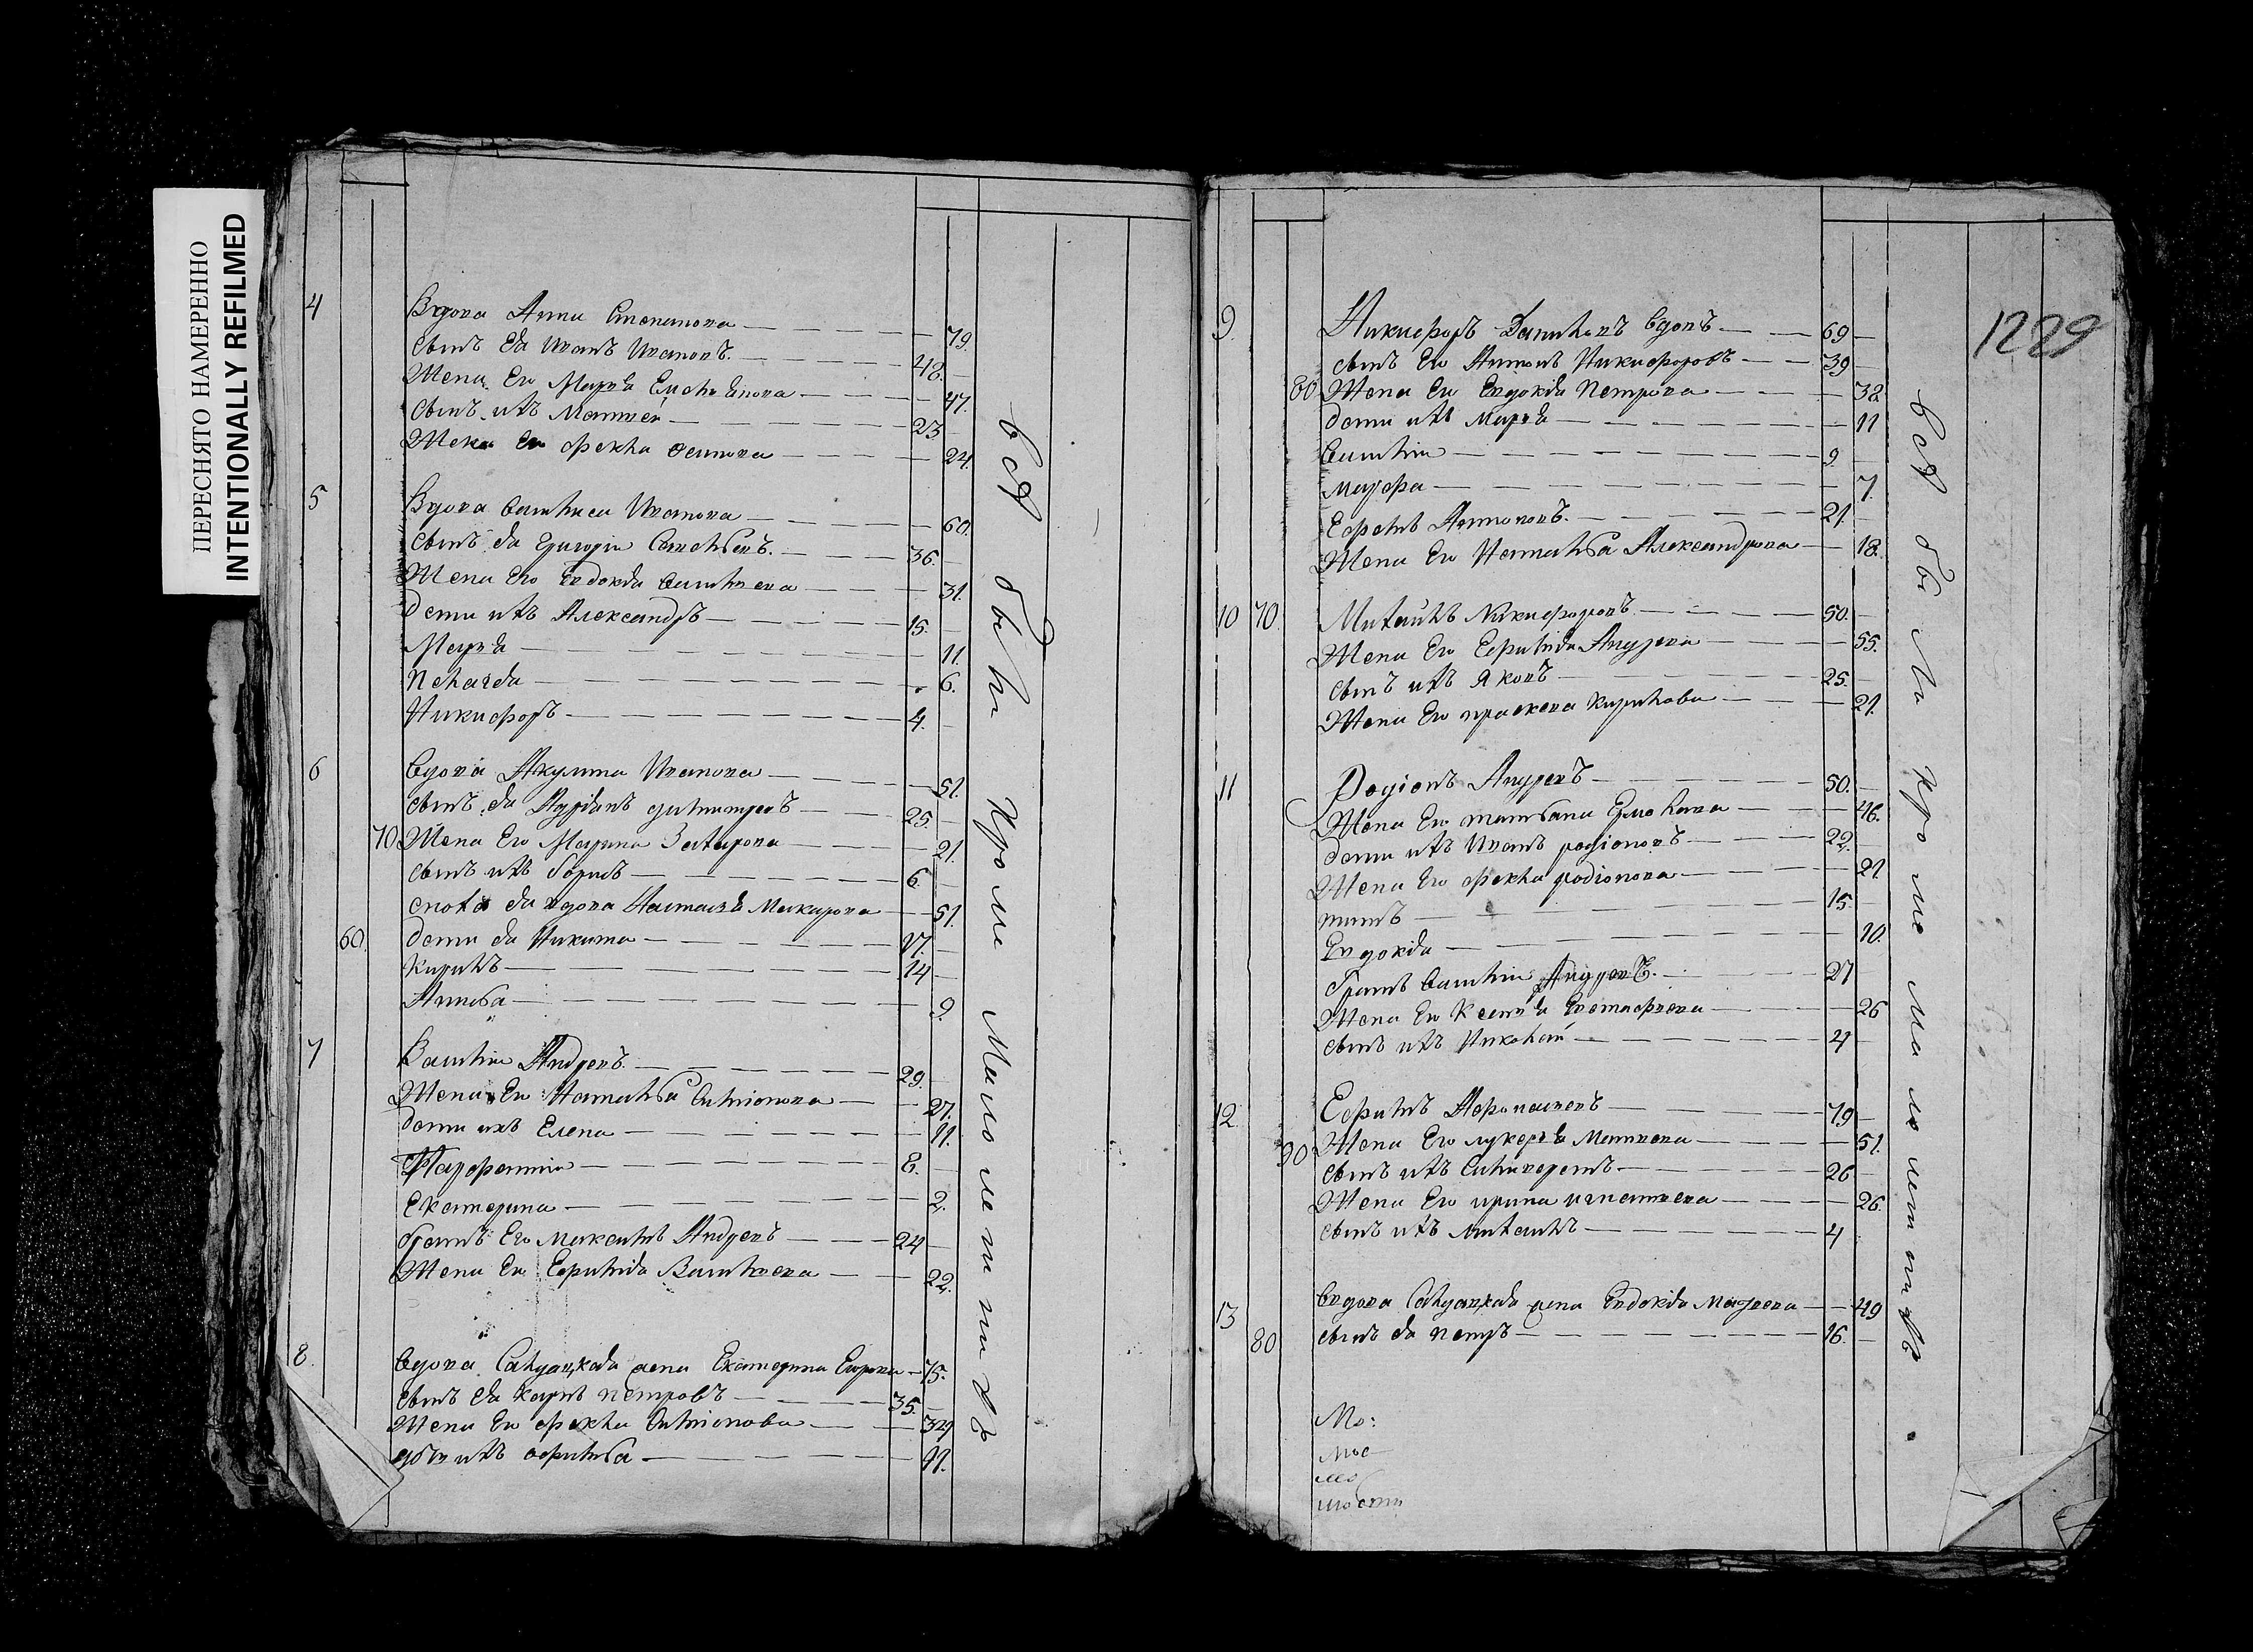 ПЕРЕСНЯТО НАМЕРЕННО
INTENTIONALLY REFILMED
4 Вдова Анна Степанова — 79.
сынъ Ея Иванъ Ивановъ. — 48.
Жена Его Марья Емельянова — 47.
сынъ ихъ Матвей — 23
Жена Его Фекла Осипова — 24.
5 Вдова Василиса Иванова — 60.
сынъ Ея Григорiи Савельевъ. — 36.
Жена Его Евдокiя Василиева — 31.
дети ихъ Александръ — 15.
Марья — 11.
Пелагея — 6.
Никифоръ — 4.
6 Вдова Акулина Иванова — 51.
сынъ Ея Андрiянъ дмитриевъ — 25.
70 Жена Его Марина Захарова — 21.
сынъ ихъ борисъ — 6.
сноха Ея вдова Настасья Макарова — 51.
60. дети Ея Никита — 17.
Кирилъ — 14
Анисья — 9.
7 Василiи Андреевъ. — 29.
Жена Его Наталья Симионова — 27.
дети ихъ Елена — 11.
Парфентiи — 8.
Екатерина — 2.
братъ Его Максимъ Андреевъ — 24
Жена Его Ефимiя Василиева — 22.
8. Вдова Салдацкая жена Екатерина Егорова — 75.
сынъ Ея Карпъ петровъ — 35.
Жена Его Фекла Симионова — 34
дочь ихъ Афимья — 11.
вся были кроме малолетнихъ
1229
9. Никифоръ Даниловъ вдовъ — 69
сынъ Его Антонъ Никифоровъ — 39
80 Жена Его Евдокiя Петрова — 38.
дети ихъ Марья — 11
Василiи — 9
Марфа — 7.
Ефремъ Антоновъ. — 21.
Жена Его Наталья Александрова — 18.
10 70. Михаилъ Никифоровъ. — 50.
Жена Его Ефимiя Андреева — 55.
сынъ ихъ Яковъ — 25.
Жена Его праскева Кирилова — 21.
11 Родiонъ Андреевъ — 50.
Жена Его татьяна Ермолаева — 46.
дети ихъ Иванъ родiоновъ — 22.
Жена Его Фекла родионова — 21.
титъ — 15.
Евдокiя — 10.
братъ Василiи Андреевъ. — 27
Жена Его Ксенья Евстафиева — 26
сынъ ихъ Николай — 4
12 Ефимъ Афонасиевъ — 79
90 Жена Его лукерья Матвеева — 51.
сынъ ихъ Симиверстъ — 26
Жена Его ирина игнатиева — 26.
сынъ ихъ михаилъ — 4
13 Вдова Салдацкая жена Евдокiя Матвеева — 49
80 сынъ Ея петръ — 16.
вся были кроме малолетнихъ.